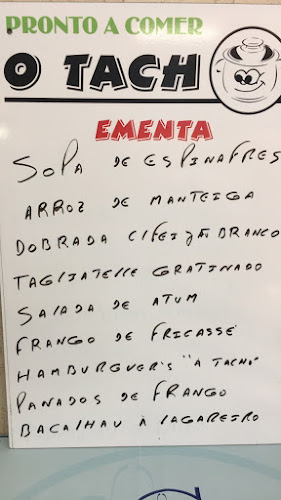 PRONTO A COMER
O TACH
EMENTA
SOPA DE ESPINAFRES
ARROZ DE MANTEIGA
DOBRADA C/FEIJÃO BRANCO
TAGLIATELLE GRATINADO
SALADA DE ATUM
FRANGO DE FRICASSÉ
HAMBURGUER'S "A TACHO"
PANADOS DE FRANGO
BACALHAU À LAGAREIRO